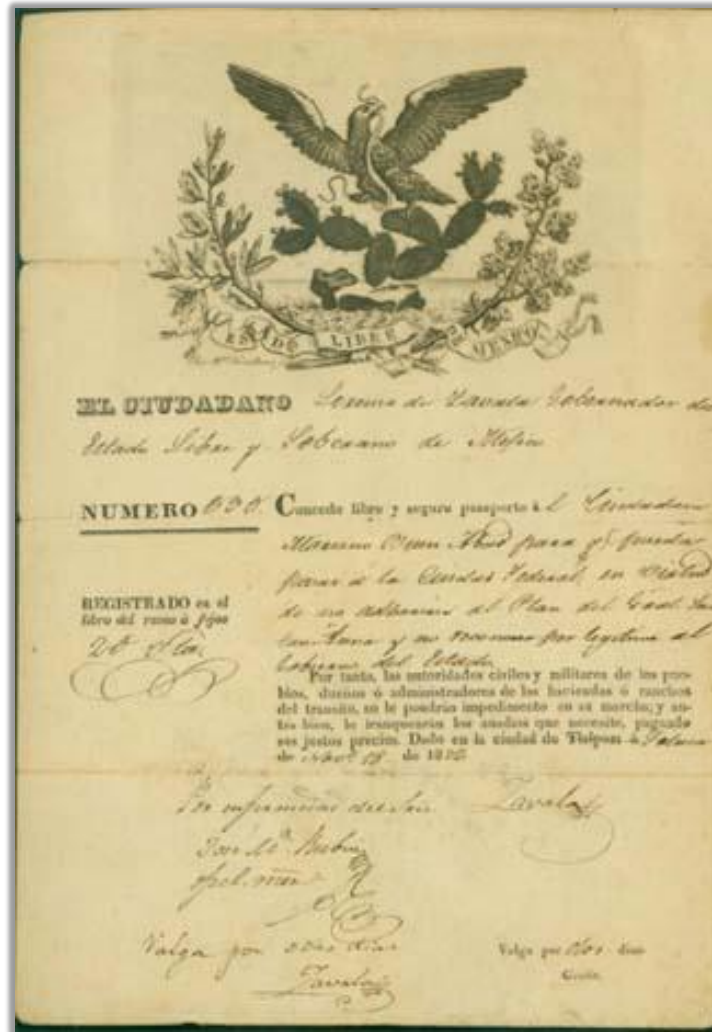 ESTADO LIBRE DE MEXICO
EL CIUDADANO Lorenzo de Zavala Gobernador del
Estado Libre y Soberano de Mejico
NUMERO Concede libre y seguro pasaporte á l Ciudadano
Mariano para qe. pueda
pasar á la Ciudad Federal, en virtud
REGISTRADO en el
libro del ramo á fojas
de no adherirse al Plan del Gral. San
tanna y no reconocer por legitimo al
Gobierno del Estado.
Por tanto, las autoridades civiles y militares de los pue-
blos, dueños ó administradores de las haciendas ó ranchos
del transito, no le pondrán impedimento en su marcha; y an-
tes bien, le franquearán los ausilios que necesite, pagando
sus justos precios. Dado en la ciudad de Tlalpam á
de de 18
Por enfermedad del Srio. Zavala
José Ma. Rubio
ofel. mor.
Valga por dias
Zavala
Valga por dias
Gratis.